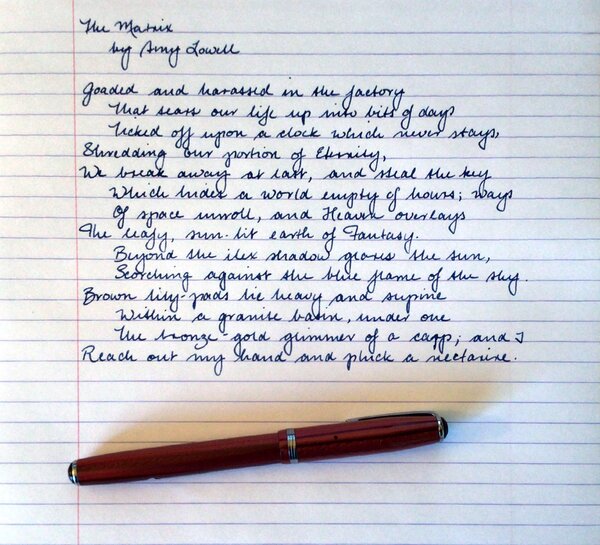 The Matrix
by Amy Lowell
Goaded and harassed in the factory
That tears our life up into bits of days
Ticked off upon a clock which never stays,
Shredding our portion of Eternity,
We break away at last, and steal the key
Which hides a world empty of hours; ways
Of space unroll, and Heaven overlays
The leafy, sun-lit earth of Fantasy.
Beyond the ilex shadow glares the sun,
Scorching against the blue flame of the sky.
Brown lily-pads lie heavy and supine
Within a granite basin, under one
The bronze-gold glimmer of a carp; and I
Reach out my hand and pluck a nectarine.